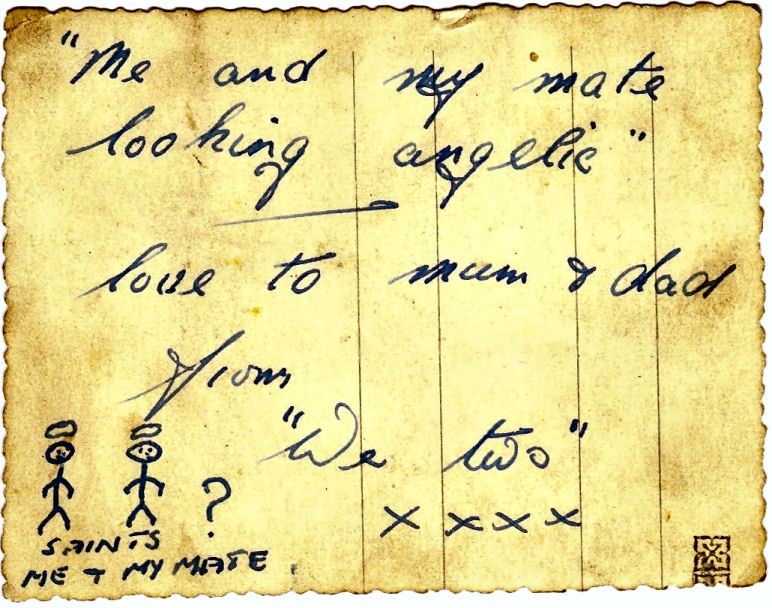 "Me and my mate
looking angelic"
love to mum & dad
from
"We two"
x x x x
?
SAINTS
ME + MY MATE.